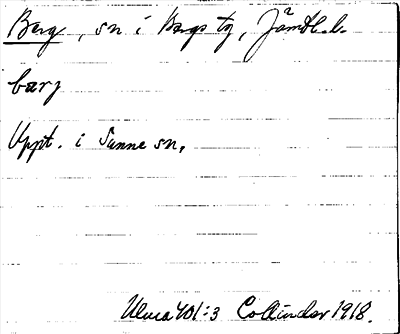 Berg, sn i Bergs tg, Jämtl.l.
bærj
Uppt. i Sunne sn.
Ulma 401:3 Collinder 1918.